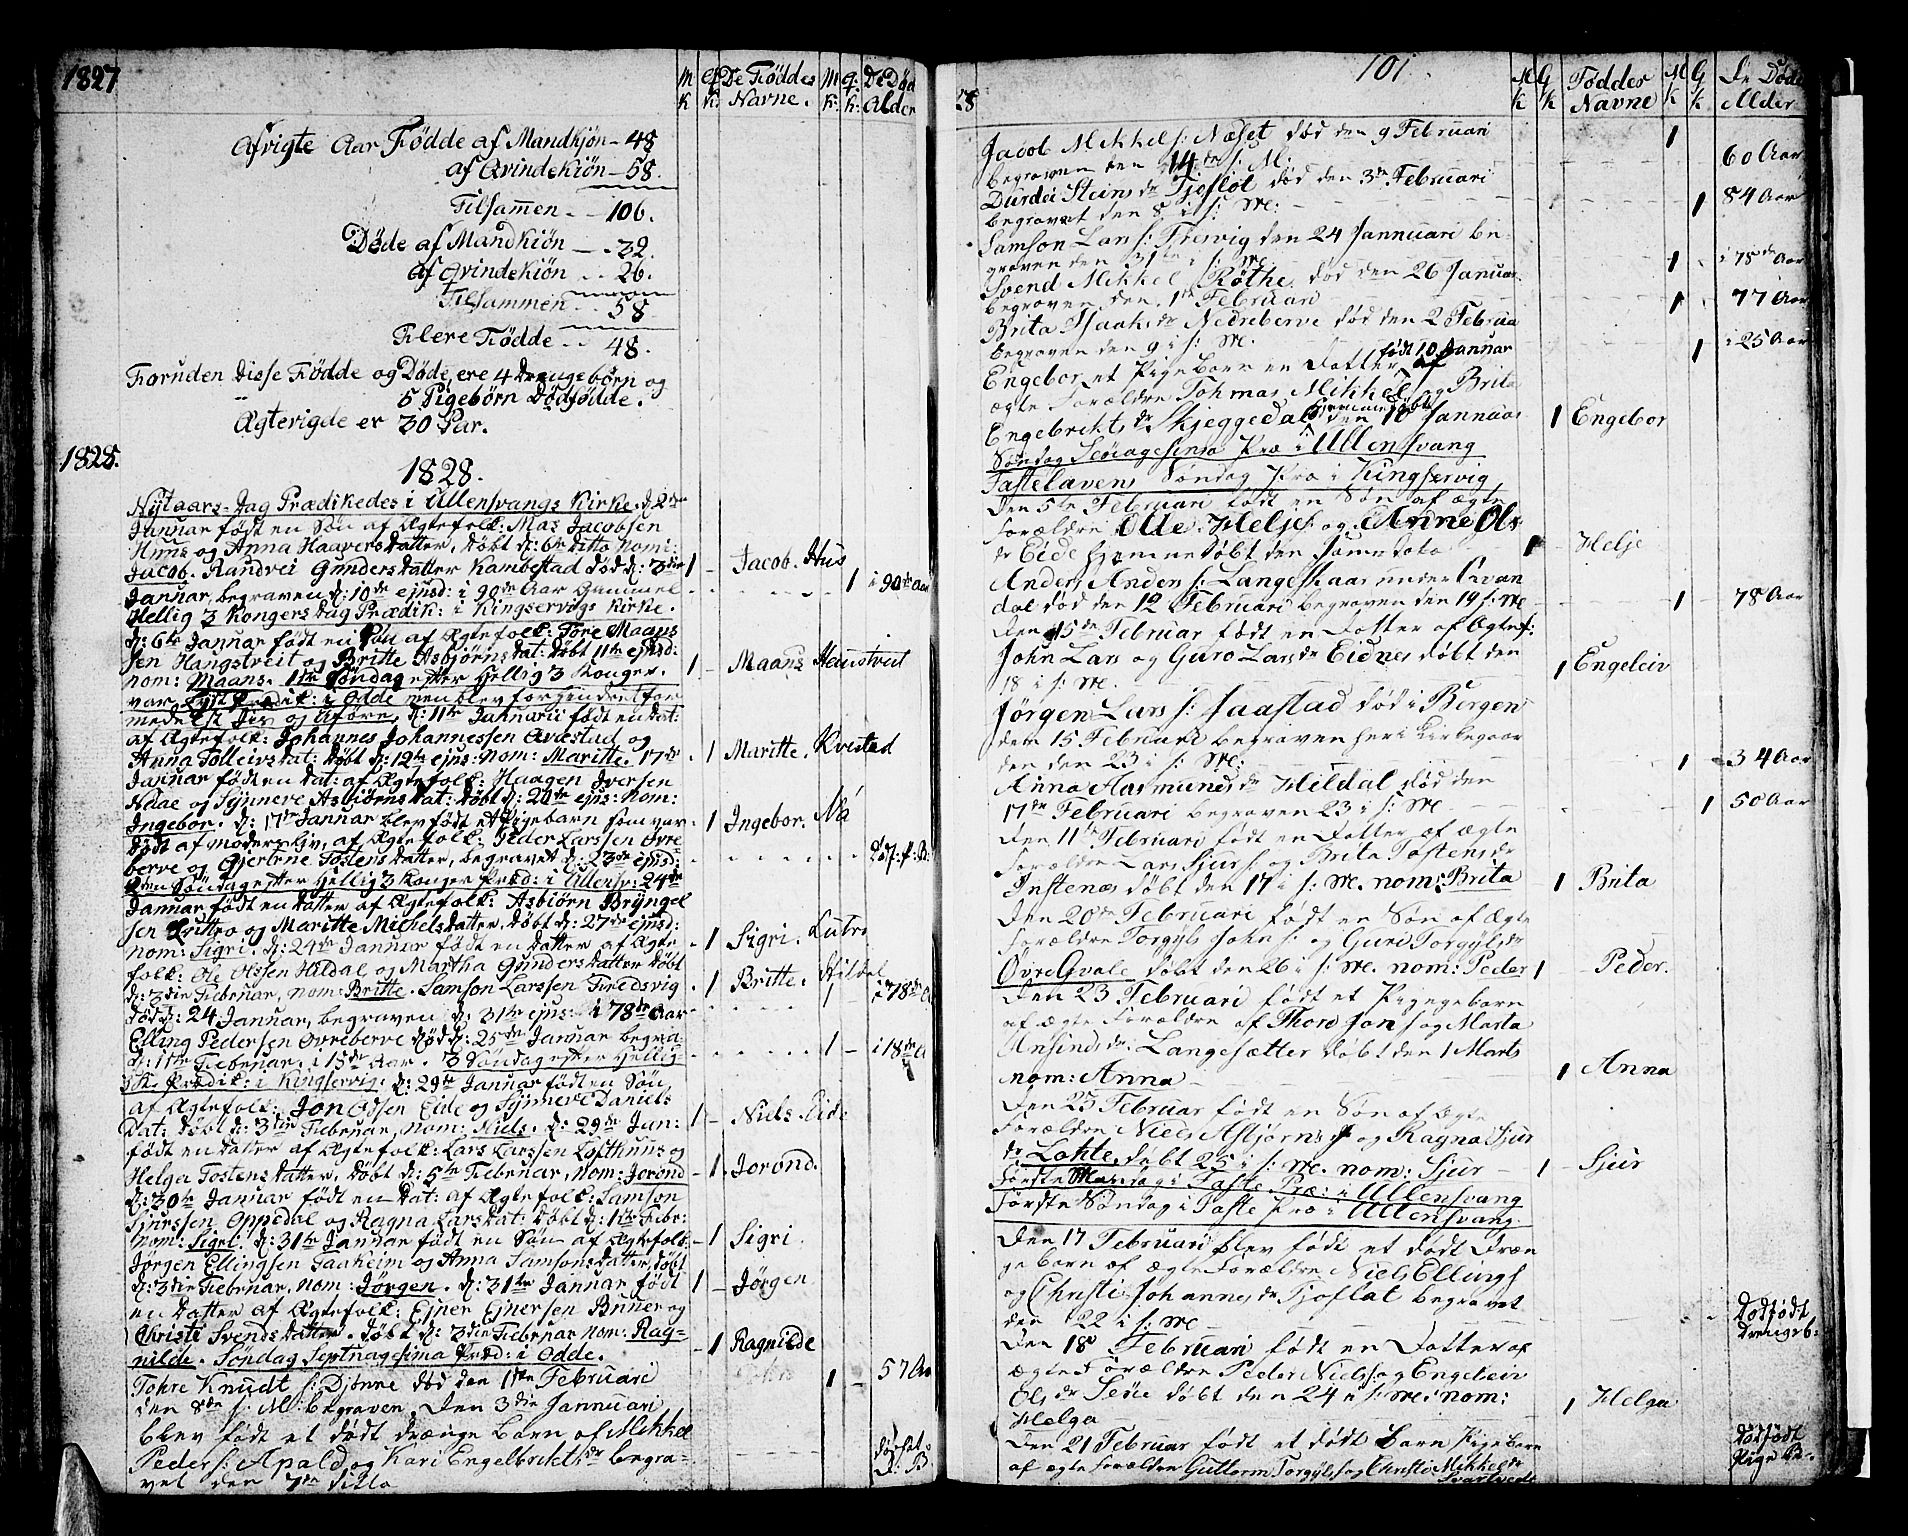 1827
M k
q: k:
De Fødde
Navne.
M k:
q: k:
De Død
Alder
Afvigte Aar Fødde af Mandkjøn - 48
af Qvindekiøn - 58.
Tilsamen - - 106.
Døde af Mandkiøn - - 32.
af Qvindekiøn - - 26.
Tilsammen - - 58
Flere Fødde - - 48.
Foruden disse Fødde og Døde, ere 4 drengebørn og
5 Pigebørn Dødfødde.
Ægtevigde er 30 Par.
1828.
1828.
Nytaars-Dag Prædikedes i Ullensvangs Kirke. d: 2de
Januar født en Søn af Ægtefolk: Mas Jacobsen
Huus og Anna Haaversdatter, døbt d: 6te ditto nomi:
Jacob. Randvei Gundersdatter Kambestad død d: 3die
Januar, begraven d: 10de ejusd: i 90de Aar Gammel
Hellig 3 Kongers dag Prædik: i Kingservigs Kirke.
d: 6te Januar født en Søn af Ægtefolk: Tore Maans
sen Hangstveit og Britte Asbjørnsdat: døbt 11te ejusd:
nom: Maans. 1ste Søndag efter Hellig 3 Konger.
var lyst Prædik: i Odde men blev forhindret for
medelst Iis og Uføre, d: 11te Januarii født en dat:
af Ægtefolk: Johannes Johannessen Qvæstad og
Anna Tolleivsdat: døbt d: 12te ejus: nom: Maritte. 17de
Januar født en dat: af Ægtefolk: Haagen Iversen
Naae og Synneve Asbiørnsdat: døbt d: 20de ejus: nom:
Ingebor. d: 17de Januar blev født et Pigebarn som var
død af moders liv, af Ægtefolk: Peder Larssen Øvre
berve og Gjertrue Tostensdatter, begravet d: 23de ejusd:
2den Søndag efter Hellig 3 Konger Præd: i Ullensv: 24de
Januar født en datter af Ægtefolk: Asbiørn Bryngel
sen Luttro og Maritte Michelsdatter, døbt d: 27de ejusd:
nom: Sigri. d: 24de Januar født en datter af Ægte
folk: Ole Olssen Hildal og Martha Gundersdatter døbt
d: 3die Februar, nom: Britte. Samson Larssen Tredsvig
død d: 24 Januar, begraven d: 31te ejus: i 78de Aar
Elling Pedersen Øvreberve død d: 25de Januar begra:
d: 1ste Februar, i 18de Aar. 3 Søndag efter Hellig
3 K. Prædik: i Kingservig. d: 29te Januar født en Søn
af Ægtefolk: Jon Odsen Eide og Synneve Daniels
dat: døbt d: 3die Februar, nom: Niels. d: 29de Jan:
født en datter af Ægtefolk: Lars Larssen Lofthuus og
Helga Tostensdatter, døbt d: 5te Februar, nom: Jorond
d: 30te Januar født en dat: af Ægtefolk: Samson
Sjurssen Oppedal og Ragna Larsdat: døbt d: 1ste Febr:
nom: Sigri. d: 31te Januar født en Søn af Ægtefolk:
Jørgen Ellingsen Haaheim og Anna Samsonsdatter, døbt
d: 3die Februar, nom: Jørgen. d: 31te Januar født
en datter af Ægtefolk: Ejner Ejnersen Buner og
Christi Svendsdatter. døbt d: 3die Februar nom: Rag-
nilde. Søndag Septuagesima Præd: i Odde.
Tohre Knudt s: Djønne død den 1ste Februari
den 8de s: M: begraven. Den 3die Jannuari
blev født et dødt drænge barn af Mikkel
Peder s: Apald og Kari Engelbrikts dr begra-
vet den 7de ditto
1 - Jacob. Hus
1 i 90de Aar
1 - Maans Haustveid
1 Maritte. Kvestad
1 Ingebor. Nå
død: f: B:
1 Sigri. Lutro
1 Britte. Hildal
1 i 78de A
1 - i 18de A
1 - Niels. Eide
1. Jorond.
1 Sigri.
1 - Jørgen
1 Ragnilde
1 - 57 Aar
28
101.
M k
G k
Fødder
Navne
M k
G k
De Døde
Alder
Jacob Mikkel s: Næset død den 9 Februari
begraven den 14de s: M:
Durdei Steins dr Tjoflot død den 3de Februari
begravet den 8 i s: M:
Samson Lars s: Tresvig den 24 Jannuari be-
graven den 31te i s: M:
Svend Mikkel s. Røthe død den 26 Januar.
begraven den 1te Februari
Brita Isaaks dr Nedreberve død den 2 Februa
begraven den 9 i s: M.
født 10 Januar
Engebor et Pigebarn en Datter af
ægte Forældre Tohmas Mikkel s og Brita
Engebrikts dr Skjeggedal hjemmedøbt den 16 Jannuar
Søndag Sexagesima Præ i Ullensvang
Fastelavens Søndag Præ i Kingservig,
Den 5te Februari født en Søn af ægte
Forældre Olle Helje s og Anne Ols
dr Eide hjemmedøbt den samme dato
Anders Anders s: Langeskaas under Qvan
dal død den 12 Februari begraven den 19 s: M
Den 15de Februar født en Datter af Ægtef:
John Lars og Guro Lars dr Eidnes døbt den
18 i s: M.
Jørgen Lars s: Haastad død i Bergen
dem 15 Februari begraven her i Kirkegaar
den den 23 i s: M:
Anna Aasmunds dr Hildal død den
17de Februari begraven 23 i s: M
Den 11te Februari født en Datter af ægte
Forældre Lars Sjur s og Brita Tostens dr
Instenæs døbt den 17 i s: M. nom: Brita
Den 20de Februari født en Søn af Ægte
Forældre Torgyls John s: og Guri Torgyls dr
Øvre Qvale døbt den 26 i s: M. nom: Peder
Den 23 Februari født et Pigegebarn
af ægte Forældre af Thord Jon s og Marta
Ansinds dr: Langesætter døbt den 1 Marts
nom: Anna
Den 23 Februar født en Søn af Ægte
Forældre Niels Asbjørn s og Ragna Sjur
dr Lohte. døbt 25 i s: M. nom: Sjur
Første Mandag i Faste Præ: i Ullensvang
Første Søndag i Faste Præ: i Ullensvang.
Den 17 Februari blev født et dødt Dræn
ge barn af ægte Forældre Niels Ellings
og Christi Johannes dr Tjoflat begravet
den 22 i s: M
Den 18 Februari født en Datter af
Ægte Forældre Peder Niels s: og Engeleiv
Ols dr Sexe døbt den 24 i s: M: nom:
Helga
Den 21 Februar født et dødt Barn Pigebarn
af ægte Forældre Guttorm Torgyls s og Christi Mikkels dr
Svartvedt
1 60 Aar
1 84 Aar
1 i 78de Aar
1 77 Aar
1 i 25 Aar
1 Engebor
1 - Helje
1 78 Aar
1 Engeleiv
1 34 Aar
1 50 Aar
1 Brita
1 - Peder.
1 Anna
1 - Sjur
Dødfødt
Drengeb:
1 Helga
Dødfødt
Pige Ba: